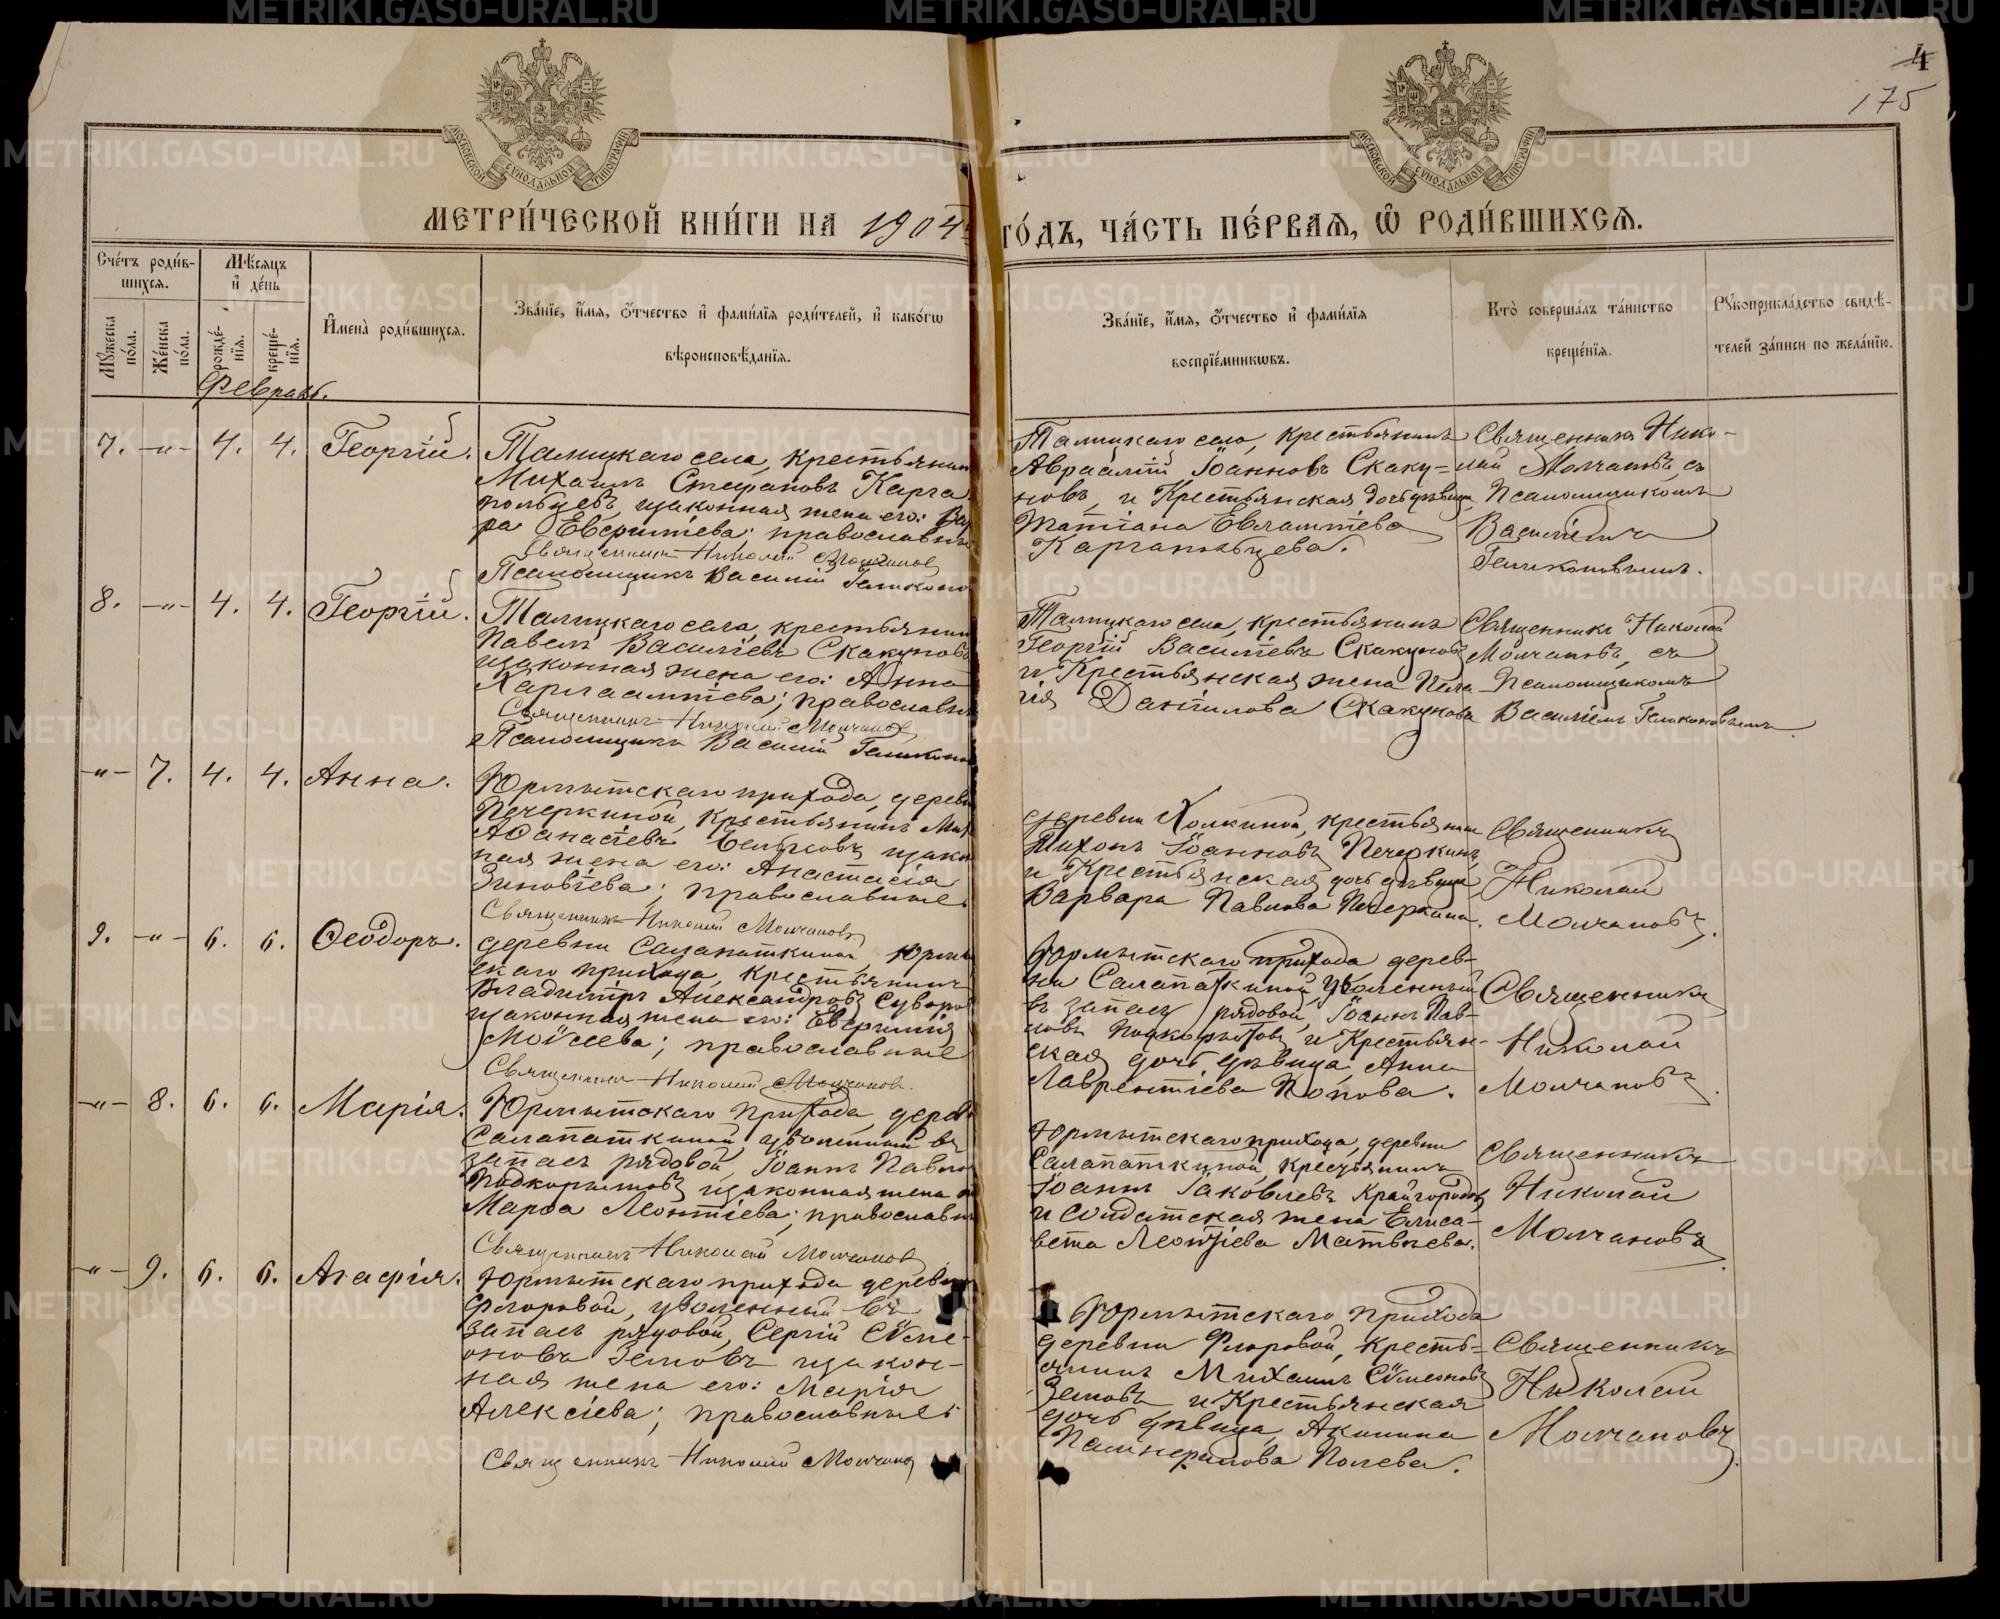 4
175
МОСКОВСКОЙ СУНОДАЛЬНОЙ ТИПОГРАФІИ
МОСКОВСКОЙ СУНОДАЛЬНОЙ ТИПОГРАФІИ
МЕТРИ́ЧЕСКОЙ КНИ́ГИ НА 1904 ГО́ДЪ, ЧА́СТЬ ПЕ́РВАѦ, Ѽ РОДИ́ВШИХСѦ.
Сче́тъ роди́в-
шихсѧ.
Мѣ́сѧцъ
и҆ де́нь
Мꙋ́жеска
по́ла.
Же́нска
по́ла.
рожде́-
нїѧ.
креще́-
нїѧ.
И҆мена̀ роди́вшихсѧ.
Зва́нїе, и҆́мѧ, ѻ҆́тчество и҆ фами́лїѧ роди́телей, и҆ како́гѡ
вѣроисповѣ́данїѧ.
Зва́нїе, и҆́мѧ, ѻ҆́тчество и҆ фами́лїѧ
воспрїе́мникѡвъ.
Кто̀ соверша́лъ та́инство
креще́нїѧ.
Рꙋкоприкла́дство свидѣ́-
телей за́писи по жела́нїю.
Февраль.
7. -"- 4. 4. Георгій.
Талицкаго села, крестьянинъ
Михаилъ Стефановъ Карга
польцевъ, и законная жена его: Вар
ра Евфиміева; православные
Священникъ Николай Молчановъ
Псаломщикъ Василій
Талицкаго села, крестьянинъ
Авраамій Іоанновъ Скаку=
новъ, и Крестьянская дочь дѣвица
Татіана Евлампіева
Каргапольцева.
Священникъ Нико-
лай Молчановъ, съ
Псаломщикомъ
Василіемъ
8. -"- 4. 4. Георгій.
Талицкаго села, крестьянинъ
Павелъ Василіевъ Скакуновъ
и законная жена его: Анна
Харлампіева; православные
Священникъ Николай Молчановъ
Псаломщикъ Василій
Талицкаго села, крестьянинъ
Георгій Василіевъ Скакуновъ
и Крестьянская жена Пела-
гія Даніилова Скакунова
Священникъ Николай
Молчановъ, съ
Псаломщикомъ
Василіемъ
-"- 7. 4. 4. Анна.
Юрмытскаго прихода, дерев
Печеркиной, крестьянинъ Мих
Афанасіевъ и закон
ная жена его: Анастасія
Зиновіева; православные.
Священникъ Николай Молчановъ
деревни Холкиной, крестьянинъ
Тихонъ Іоанновъ Печеркинъ,
и Крестьянская дочь дѣвица
Варвара Павлова Печеркина.
Священникъ
Николай
Молчановъ.
9. -"- 6. 6. Ѳеодоръ.
деревни Салапаткиной Юрмыт
скаго прихода, крестьянинъ
Владиміръ Александровъ Суворов
и законная жена его: Евфимія
Моѵсеева; православные
Священникъ Николай Молчановъ.
Юрмытскаго прихода дерев-
ни Салапаткиной, уволенный
въ запасъ рядовой, Іоаннъ Пав-
ловъ Подкорытовъ, и Крестьян-
ская дочь дѣвица, Анна
Лаврентіева Попова.
Священникъ
Николай
Молчановъ.
-"- 8. 6. 6. Марія.
Юрмытскаго прихода, дерев
Салапаткиной, уволенный въ
запасъ рядовой, Іоаннъ Павлов
Подкорытовъ, и законная жена
Марѳа Леонтіева; православные
Священникъ Николай Молчановъ
Юрмытскаго прихода, деревни
Салапаткиной, крестьянинъ
Іоаннъ Іаковлевъ Крайгородовъ,
и солдатская жена Елиса-
вета Леонтіева Матвѣева.
Священникъ
Николай
Молчановъ.
-"- 9. 6. 6. Агафія.
Юрмытскаго прихода деревни
Флоровой, уволенный въ
запасъ рядовой, Сергій Сѵме-
оновъ Земовъ и закон-
ная жена его: Марія
Алексіева; православные.
Священникъ Николай Молчановъ
Юрмытскаго прихода
деревни Флоровой, кресть-
янинъ Михаилъ Сѵмеоновъ
Земовъ, и Крестьянская
дочь дѣвица, Акилина
Полева.
Священникъ
Николай
Молчановъ.
METRIKI.GASO-URAL.RU